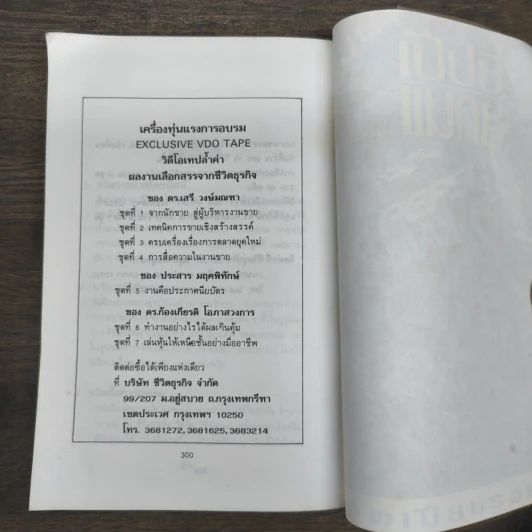 เครื่องทุ่นแรงการอบรม
EXCLUSIVE VDO TAPE
วิดีโอเทปล้ำค่า
ผลงานเลือกสรรจากชีวิตธุรกิจ
ของ ดร.เสรี วงษ์มณฑา
ชุดที่ 1 จากนักขาย สู่ผู้บริหารงานขาย
ชุดที่ 2 เทคนิคการขายเชิงสร้างสรรค์
ชุดที่ 3 ครบเครื่องเรื่องการตลาดยุคใหม่
ชุดที่ 4 การสื่อความในงานขาย
ของ ประสาร มฤคพิทักษ์
ชุดที่ 5 งานคือประกาศนียบัตร
ของ ดร.ก้องเกียรติ โอภาสวงการ
ชุดที่ 6 ทำงานอย่างไรได้ผลเกินคุ้ม
ชุดที่ 7 เล่นหุ้นให้เหนือชั้นอย่างมืออาชีพ
ติดต่อซื้อได้เพียงแห่งเดียว
ที่ บริษัท ชีวิตธุรกิจ จำกัด
99/207 ม.อยู่สบาย ถ.กรุงเทพกรีฑา
เขตประเวศ กรุงเทพฯ 10250
โทร. 3681272,3681625,3683214
300